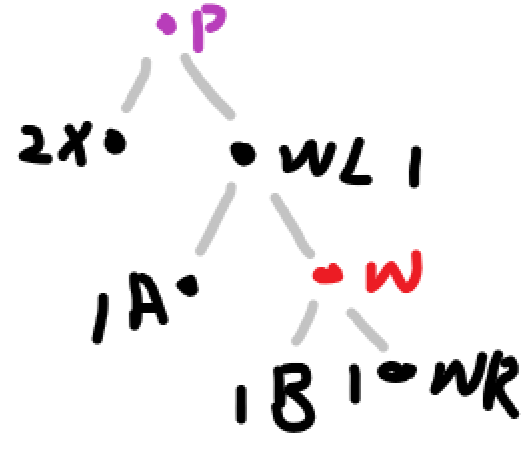 P
2X
WL 1
1A
W
1B
1 WR